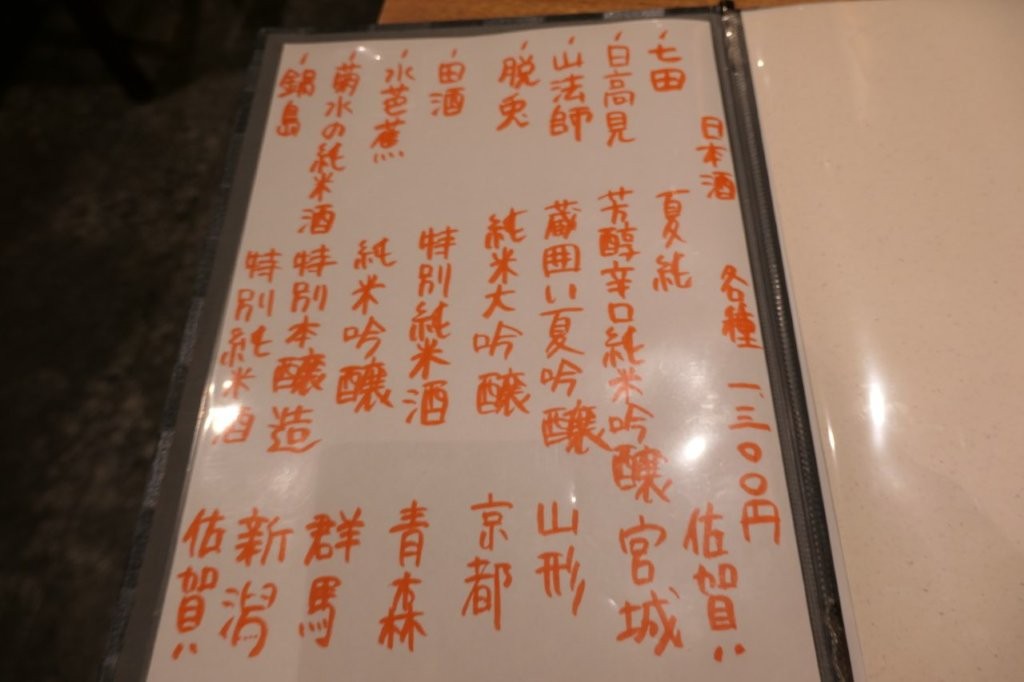 日本酒 各種 一、三〇〇円
・七田 夏純 佐賀〃
・日高見 芳醇辛口純米吟醸 宮城
・山法師 蔵囲い夏吟醸 山形
・脱兎 純米大吟醸 京都
・田酒 特別純米酒 青森
・水芭蕉 純米吟醸 群馬
・菊水の純米酒 特別本醸造 新潟
・鍋島 特別純米酒 佐賀〃